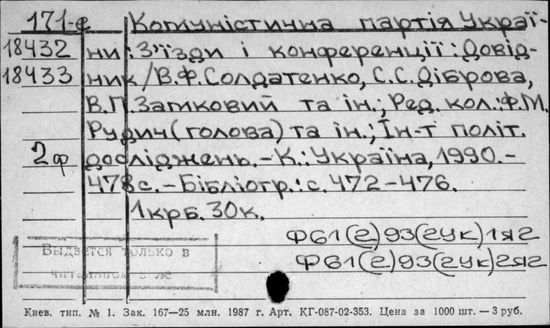 171-ф Комуністична партія Украї-
18432 ни: З'їзди і конференції: Довід-
18433 ник/В.Ф.Солдатенко, С.С.Діброва,
В.П.Замковий та ін.; Ред. кол.: Ф.М.
Рудич (голова) та ін.; Ін-т політ.
2ф досліджень.-К.: Україна, 1990.-
478с.-Бібліогр.: с. 472-476.
1 крб. 30к.
ФБ1(2)93(2Ук)1я2
ФБ1(2)93(2Ук)2я2
Выдается только в
Киев. тип. № 1. Зак. 167—25 млн. 1987 г. Арт. КГ-087-02-353. Цена за 1000 шт. — 3 руб.